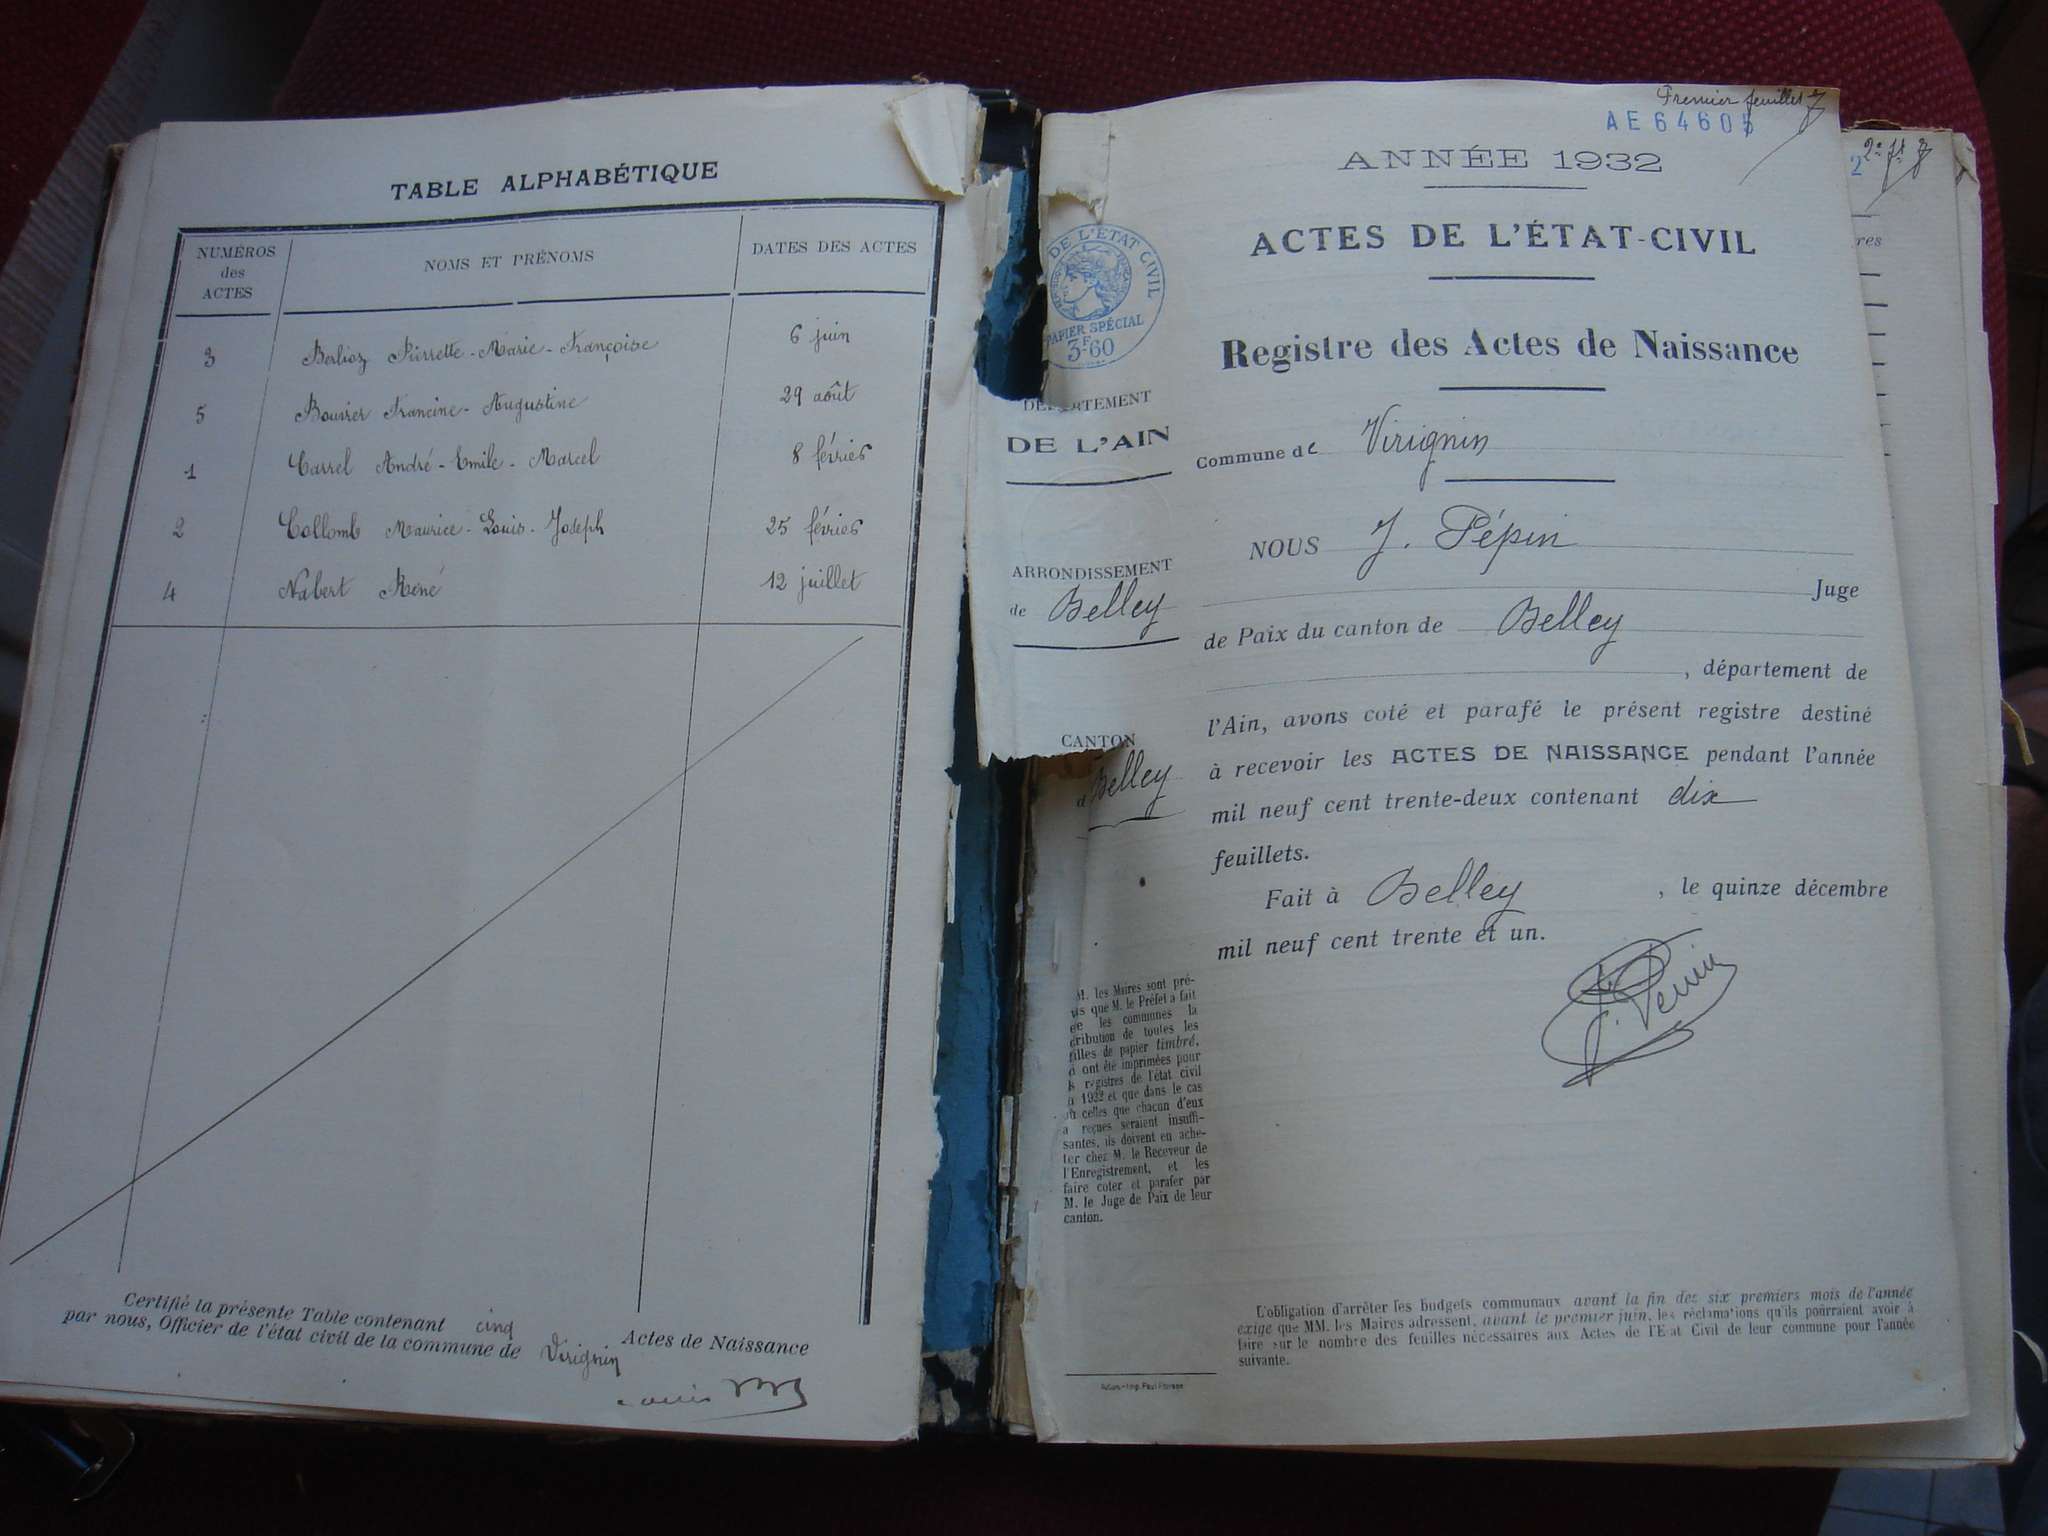 TABLE ALPHABÉTIQUE
NUMÉROS des ACTES
NOMS ET PRÉNOMS
DATES DES ACTES
3 Berlioz Pierrette-Marie-Françoise 6 juin
5 Bouvier Francine-Augustine 29 août
1 Carrel André-Emile-Marcel 8 février
2 Collomb Maurice-Louis-Joseph 25 février
4 Nabert René 12 juillet
Certifié la présente Table contenant cinq Actes de Naissance
par nous, Officier de l'état civil de la commune de Virignin
Premier feuillet
AE64605
ANNÉE 1932
ACTES DE L'ÉTAT-CIVIL
Registre des Actes de Naissance
DE L'ÉTAT CIVIL
PAPIER SPÉCIAL
3F-60
DÉPARTEMENT
DE L'AIN
ARRONDISSEMENT
de Belley
CANTON
d Belley
Commune de Virignin
NOUS J. Pépin
Juge
de Paix du canton de Belley
, département de
l'Ain, avons coté et parafé le présent registre destiné
à recevoir les ACTES DE NAISSANCE pendant l'année
mil neuf cent trente-deux contenant dix
feuillets.
Fait à Belley , le quinze décembre
mil neuf cent trente et un.
J. Pépin
M. les Maires sont pré-
que M. le Préfet a fait
les communes la
tribution de toutes les
filles de papier timbré,
ont été imprimées pour
registres de l'état civil
1932 et que dans le cas
celles que chacun d'eux
a reçues seraient insuffi-
santes, ils doivent en ache-
ter chez M. le Receveur de
l'Enregistrement, et les
faire coter et parafer par
M. le Juge de Paix de leur
canton.
L'obligation d'arrêter les budgets communaux avant la fin des six premiers mois de l'année
exige que MM. les Maires adressent, avant le premier juin, les réclamations qu'ils pourraient avoir à
faire sur le nombre des feuilles nécessaires aux Actes de l'Etat Civil de leur commune pour l'année
suivante.
2
res